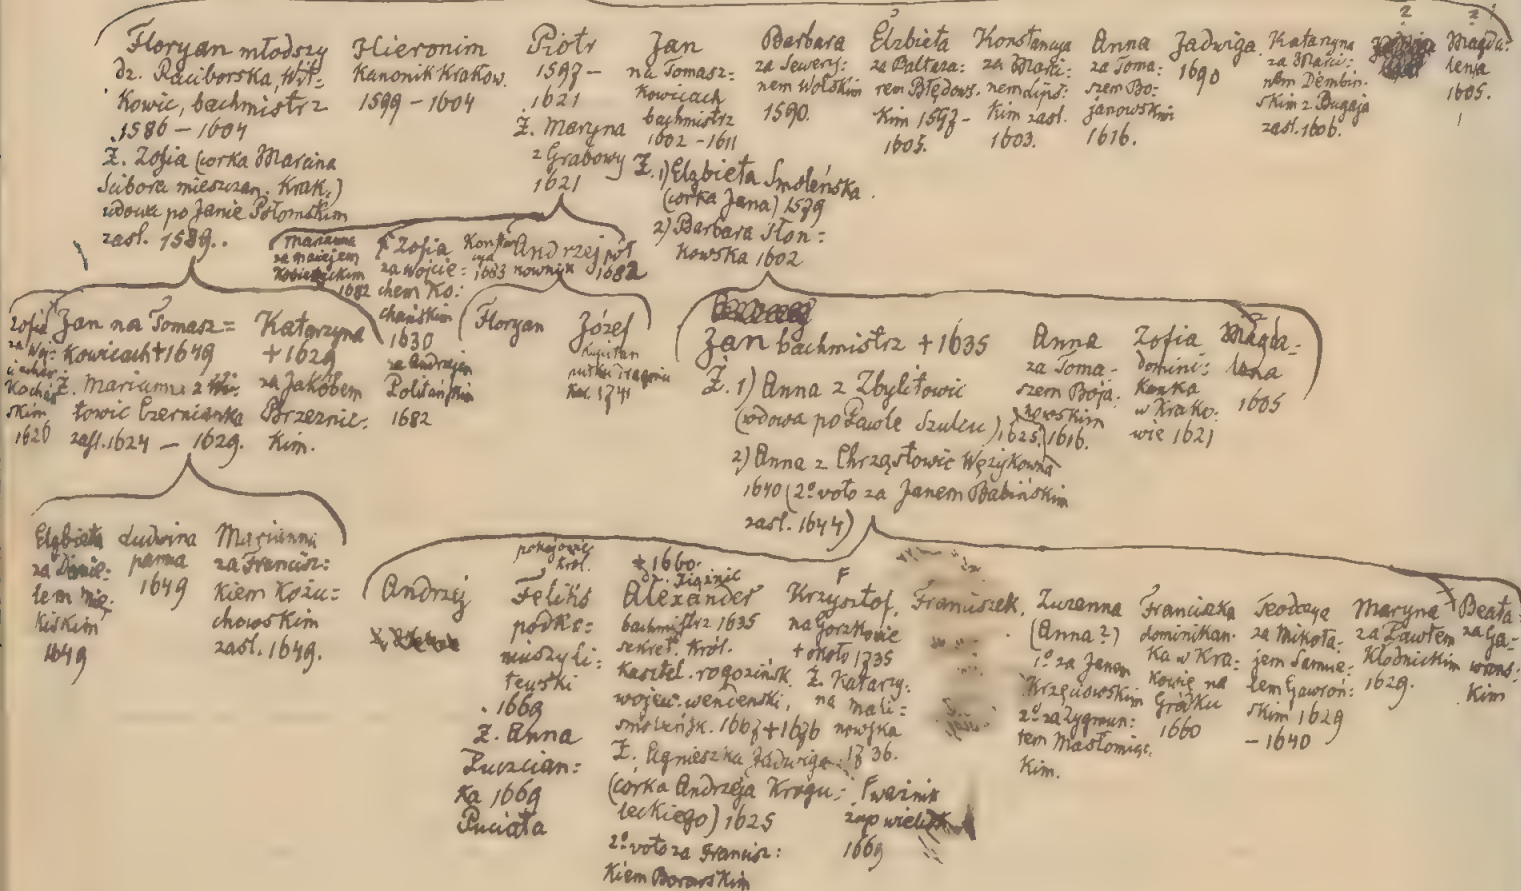 Floryan młodszy
dz. Raciborska, Wit=
kowic, bachmistrz
1586 – 1604
Ż. Zofia (córka Marcina
Scibora mieszczan. Krak.)
wdowa po Janie Połomskim
zasl. 1589..
Hieronim
Kanonik Krakow.
1599 – 1604
Piotr
1597 –
1621
Ż. Maryna
z Grabowy
1621
Jan
na Tomasz=
kowicach
bachmistrz
1602 – 1611
Ż. 1) Elżbieta Smoleńska
(corka Jana) 1579
2) Barbara Słon=
kowska 1602
Barbara
za Sewery=
nem Wolskim
1590.
Elżbieta
za Baltaza=
rem Błędows.
kim 1597 –
1605.
Konstancya
za Marci=
nem Lips=
kim zasl.
1603.
Anna
za Toma=
szem Bo=
janowskim
1616.
Jadwiga
1690
Katarzyna
za Marci=
nem Dembiń=
skim z Bugaja
zasl. 1606.
?
?
Magda=
lena
1605.
Marianna
za Maciejem
1682
Zofia
za Wojcie=
chem Ko=
chańskim
1630
za Andrzejem
1682
1683
Andrzej
1682
Floryan
Józef
1741
Zofia
za Woj=
Kochań
skim
1626
Jan na Tomasz=
kowicach +1649
Ż. Marianna z Wi=
towic Czernianka
zasl. 1624 – 1629.
Katarzyna
+ 1629
za Jakóbem
Brzeznic=
kim.
Jan bachmistrz + 1635
Ż. 1) Anna z Zbylitowic
(wdowa po Pawle Szulcu) 1625.
2) Anna z Chrząstowic Wężykowna
1640 (2º voto za Janem Babińskim
zasl. 1644)
Anna
za Toma=
szem Boja=
nowskim
1616.
Zofia
domini=
kanka
w Krako=
wie 1621
Magda=
lena
1605
Elżbieta
za Danie=
lem
1649
Ludwina
panna
1649
Marianna
za Francisz=
kiem Kożu=
chowskim
zasl. 1649.
Andrzej
pokojowiec
król.
Feliks
podko=
muszy li=
tewski
1669
Ż. Anna
1669
Puciata
+ 1660.
Alexander
bachmistrz 1635
sekret. Król.
Kasztel. rogoziński
wojew. wendenski,
smoleńsk. 1667 + 1676
Ż. Agnieszka Jadwiga
(córka Andrzeja Krogu=
leckiego) 1625
2º voto za Francisz=
kiem Borowskim
Krzysztof,
na Gorzkowie
+ około 1735
Ż. Katarzy=
na Mali=
nowska
1736.
1669
Franciszek,
Zuzanna
(Anna?)
1º za Janem
Krzęciowskim
2º za Zygmun=
tem Masłomięc.
kim.
Franciszka
dominikan=
ka w Kra=
kowie na
Gródku
1660
Teodozya
za Mikoła=
jem Samue=
lem Gawroń=
skim 1629
– 1640
Maryna
za Pawłem
Kłodnickim
1629.
Beata
za Ga=
wroń=
skim